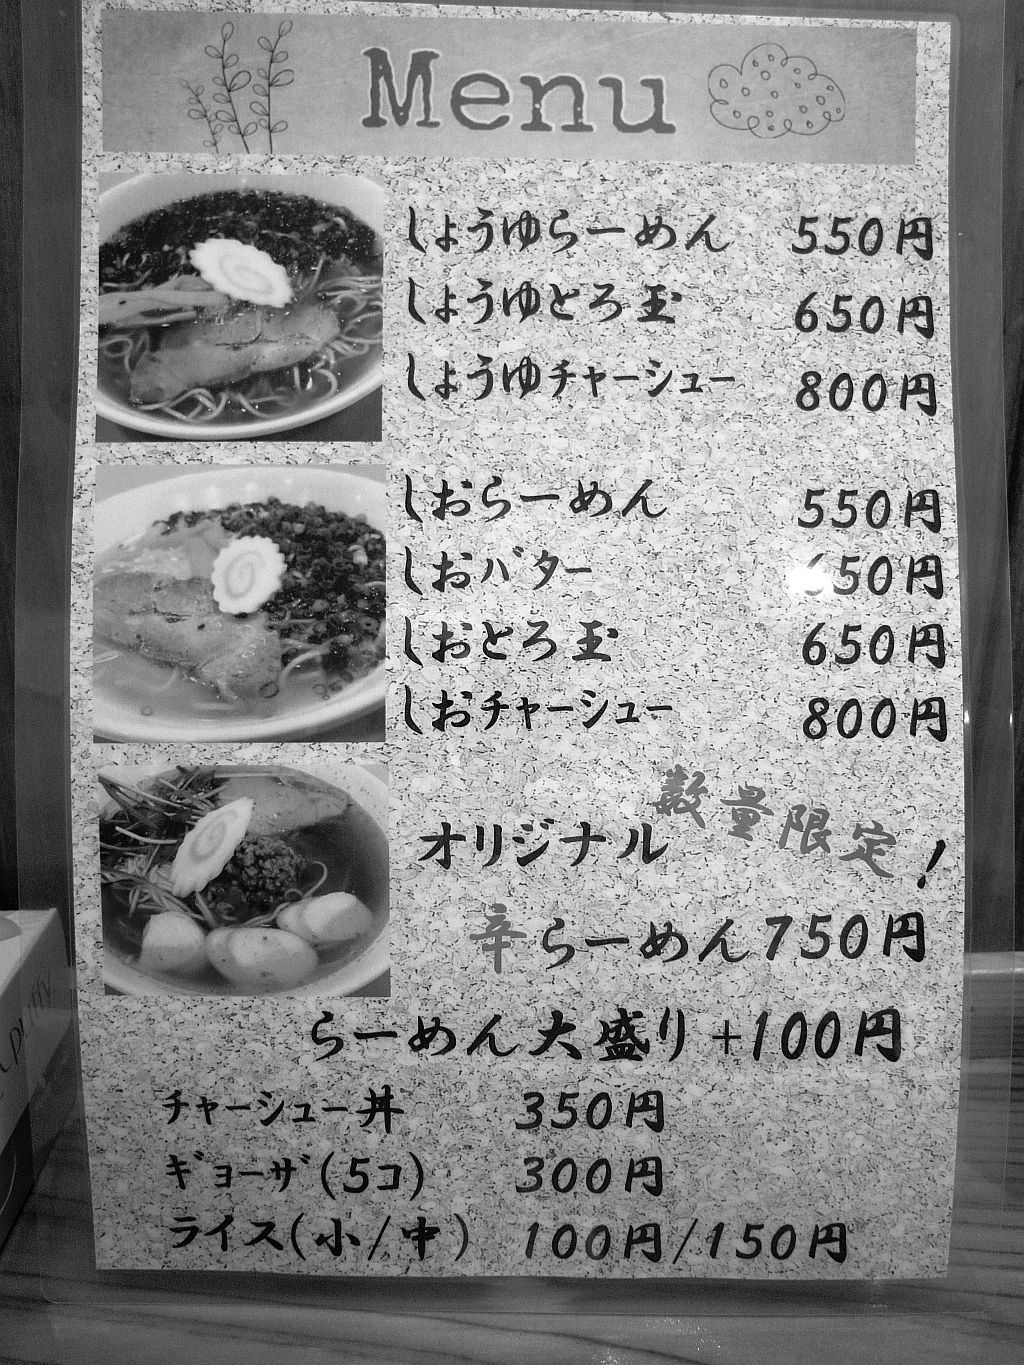 Menu
しょうゆらーめん 550円
しょうゆとろ玉 650円
しょうゆチャーシュー 800円
しおらーめん 550円
しおバター 650円
しおとろ玉 650円
しおチャーシュー 800円
数量限定!
オリジナル
辛らーめん750円
らーめん大盛り+100円
チャーシュー丼 350円
ギョーザ(5コ) 300円
ライス(小/中) 100円/150円